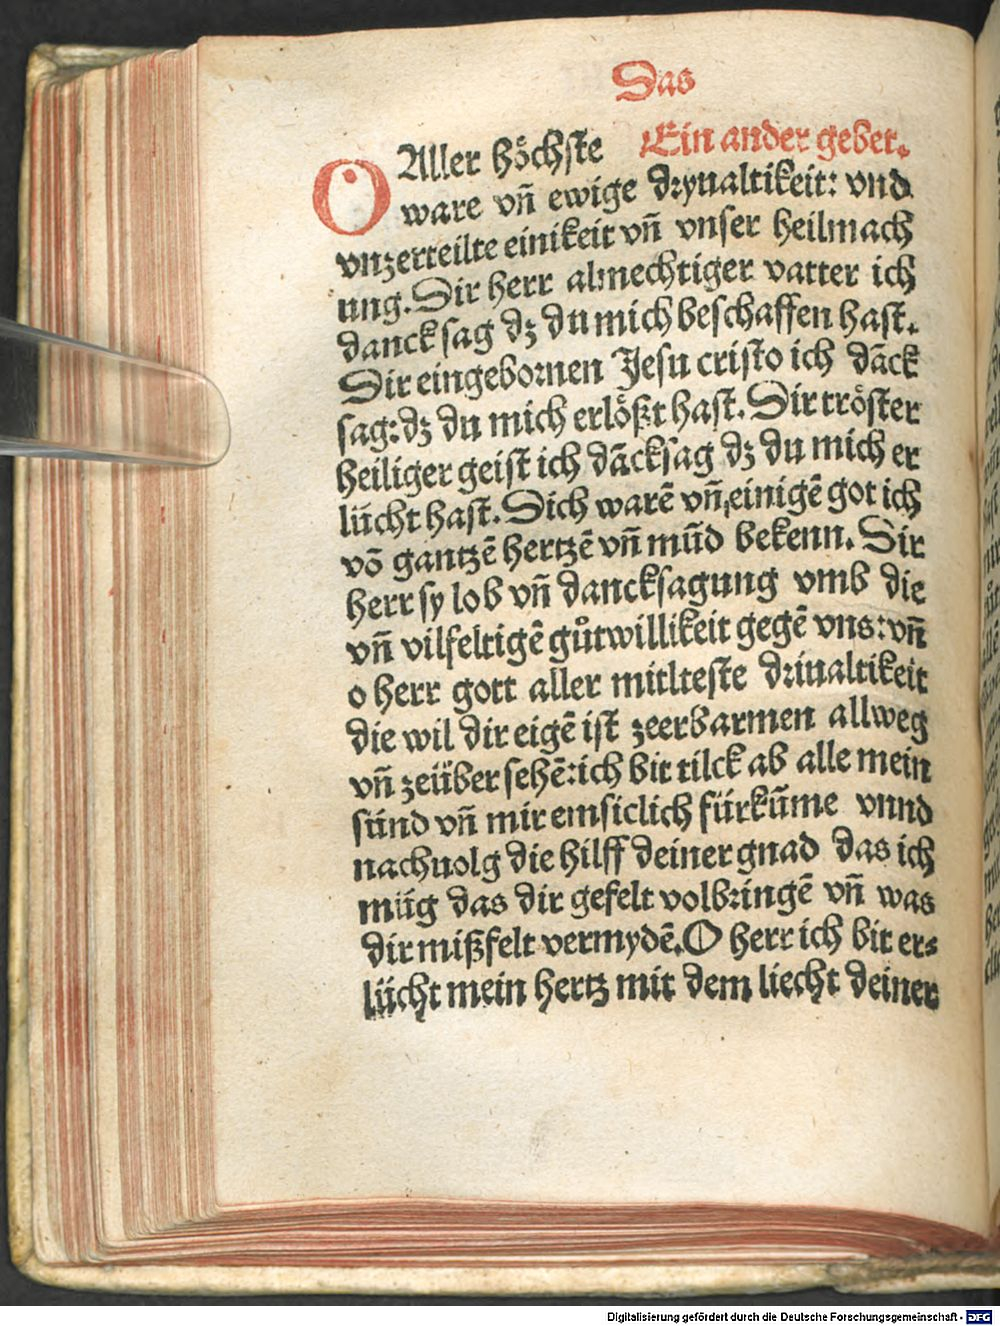 Das
Ein ander gebet.
O Aller höchste
ware vn̄ ewige dryualtikeit: vnd
vnzerteilte einikeit vn̄ vnser heilmach
ung. Dir herr almechtiger vatter ich
danck sag dz du mich beschaffen hast.
Dir eingebornen Jesu cristo ich dāck
sag: dz du mich erlößt hast. Dir tröster
heiliger geist ich dācksag dz du mich er
lücht hast. Dich warē vn̄ einigē got ich
vō gantzē hertzē vn̄ mūd bekenn. Dir
herr sy lob vn̄ dancksagung vmb die
vn̄ vilfeltigē gůtwillikeit gegē vns: vn̄
o herr gott aller mitlteste driualtikeit
die wil dir eigē ist zeerbarmen allweg
vn̄ zeübersehē: ich bit tilck ab alle mein
sünd vn̄ mir emsiclich fürkūme vnnd
nachuolg die hilff deiner gnad das ich
müg das dir gefelt volbringē vn̄ was
dir mißfelt vermydē. O herr ich bit er⸗
lücht mein hertz mit dem liecht deiner
Digitalisierung gefördert durch die Deutsche Forschungsgemeinschaft - DFG